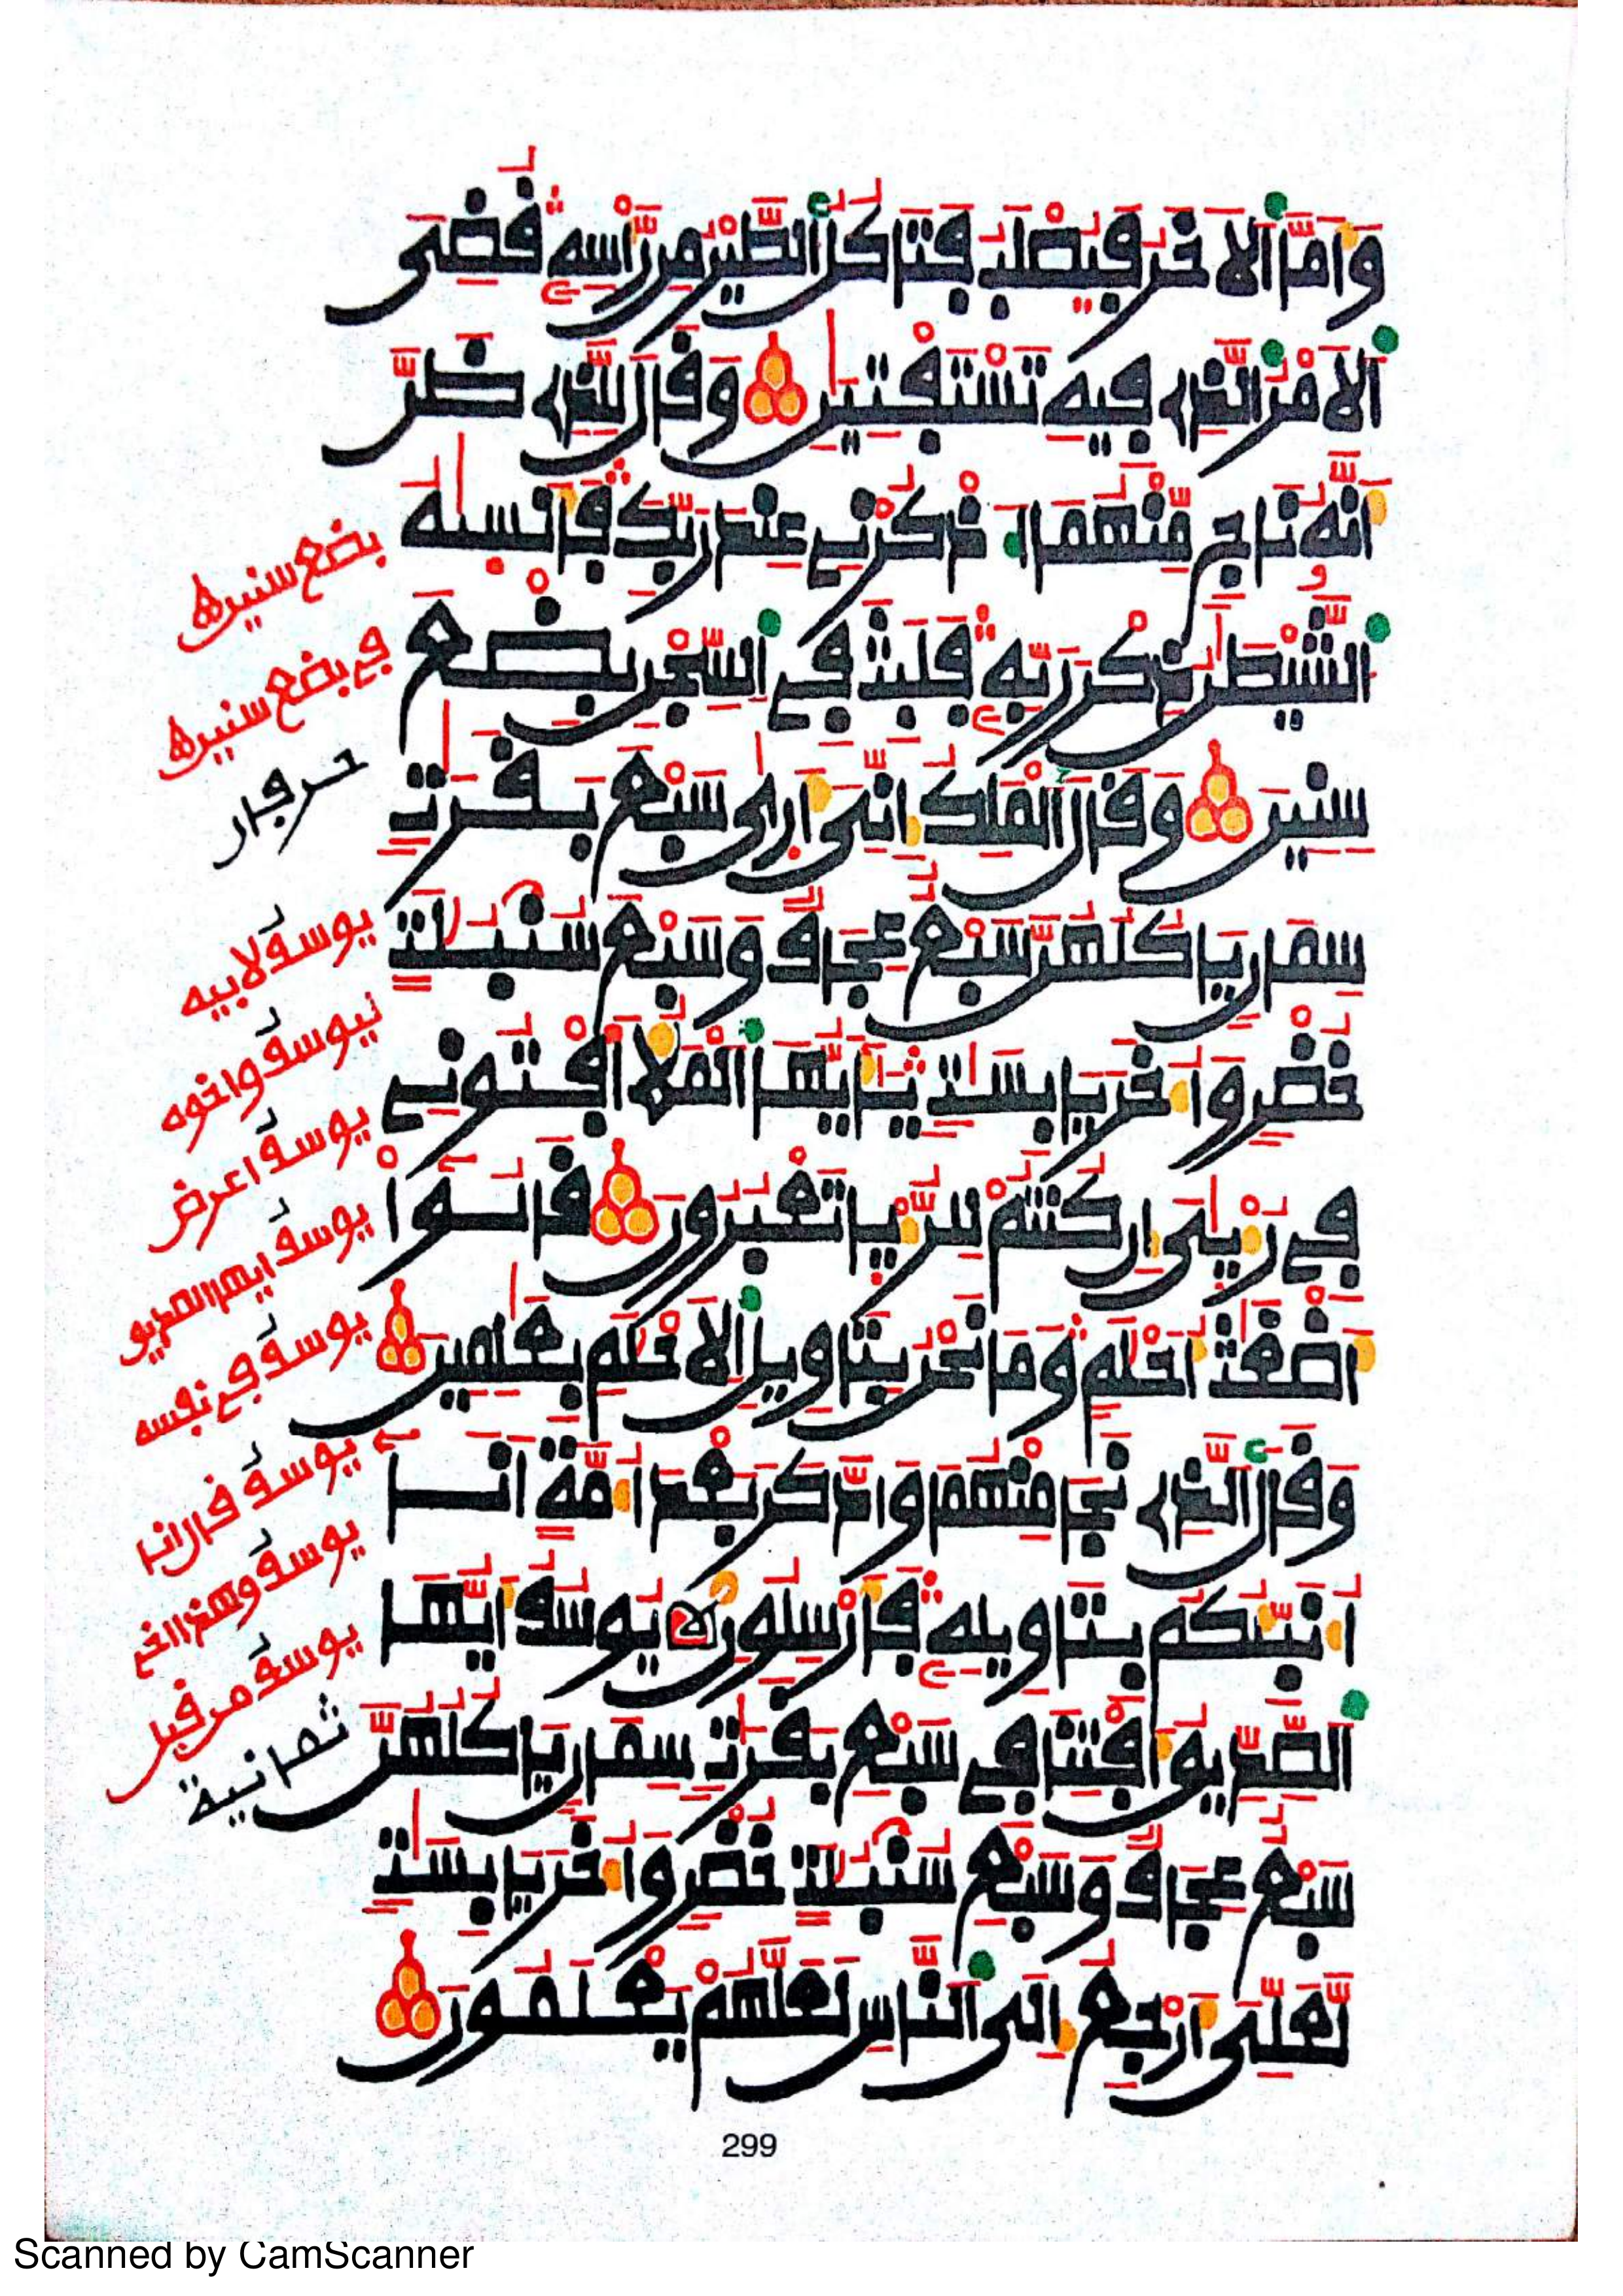 وَأَمَّا ٱلَاخَرُ فَيُصْلَبُ فَتَاكُلُ ٱلطَّيْرُ مِن رَّأْسِهِ قُضِيَ
ٱلَامْرُ ٱلَّذِے فِيهِ تَسْتَفْتِيَٰنِ وَقَالَ لِلَّذِے ظَنَّ
أَنَّهُۥ نَاجٍ مِّنْهُمَا ٱذْكُرْنِے عِندَ رَبِّكَ فَأَنسَىٰهُ
ٱلشَّيْطَٰنُ ذِكْرَ رَبِّهِۦ فَلَبِثَ فِے ٱلسِّجْنِ بِضْعَ
سِنِينَ وَقَالَ ٱلْمَلِكُ إِنِّيَ أَرَىٰ سَبْعَ بَقَرَٰتٖ
سِمَانٖ يَاكُلُهُنَّ سَبْعٌ عِجَافٞ وَسَبْعَ سُنۢبُلَٰتٍ
خُضْرٖ وَأُخَرَ يَابِسَٰتٖ يَٰٓأَيُّهَا ٱلْمَلَأُ أَفْتُونِے
فِے رُءْيَٰيَ إِن كُنتُمْ لِلرُّءْيَا تَعْبُرُونَ قَالُوٓاْ
أَضْغَٰثُ أَحْلَٰمٖ وَمَا نَحْنُ بِتَاوِيلِ ٱلَاحْلَٰمِ بِعَٰلِمِينَ
وَقَالَ ٱلذِے نَجَا مِنْهُمَا وَٱدَّكَرَ بَعْدَ أُمَّةٍ أَنَآ
أُنَبِّئُكُم بِتَاوِيلِهِۦ فَأَرْسِلُونِ يُوسُفُ أَيُّهَا
ٱلصِّدِّيقُ أَفْتِنَا فِے سَبْعِ بَقَرَٰتٖ سِمَانٖ يَاكُلُهُنَّ
سَبْعٌ عِجَافٞ وَسَبْعِ سُنۢبُلَٰتٍ خُضْرٖ وَأُخَرَ يَابِسَٰتٖ
لَّعَلِّيَ أَرْجِعُ إِلَى ٱلنَّاسِ لَعَلَّهُمْ يَعْلَمُونَ
بضع سنين
في بضع سنين
يوسف لابيه
يوسف واخوه
يوسف اعرض
يوسف ايها الصديق
يوسف في نفسه
يوسف قال انا
يوسف وهذا اخي
يوسف من قبل
ثمانية
299
Scanned by CamScanner